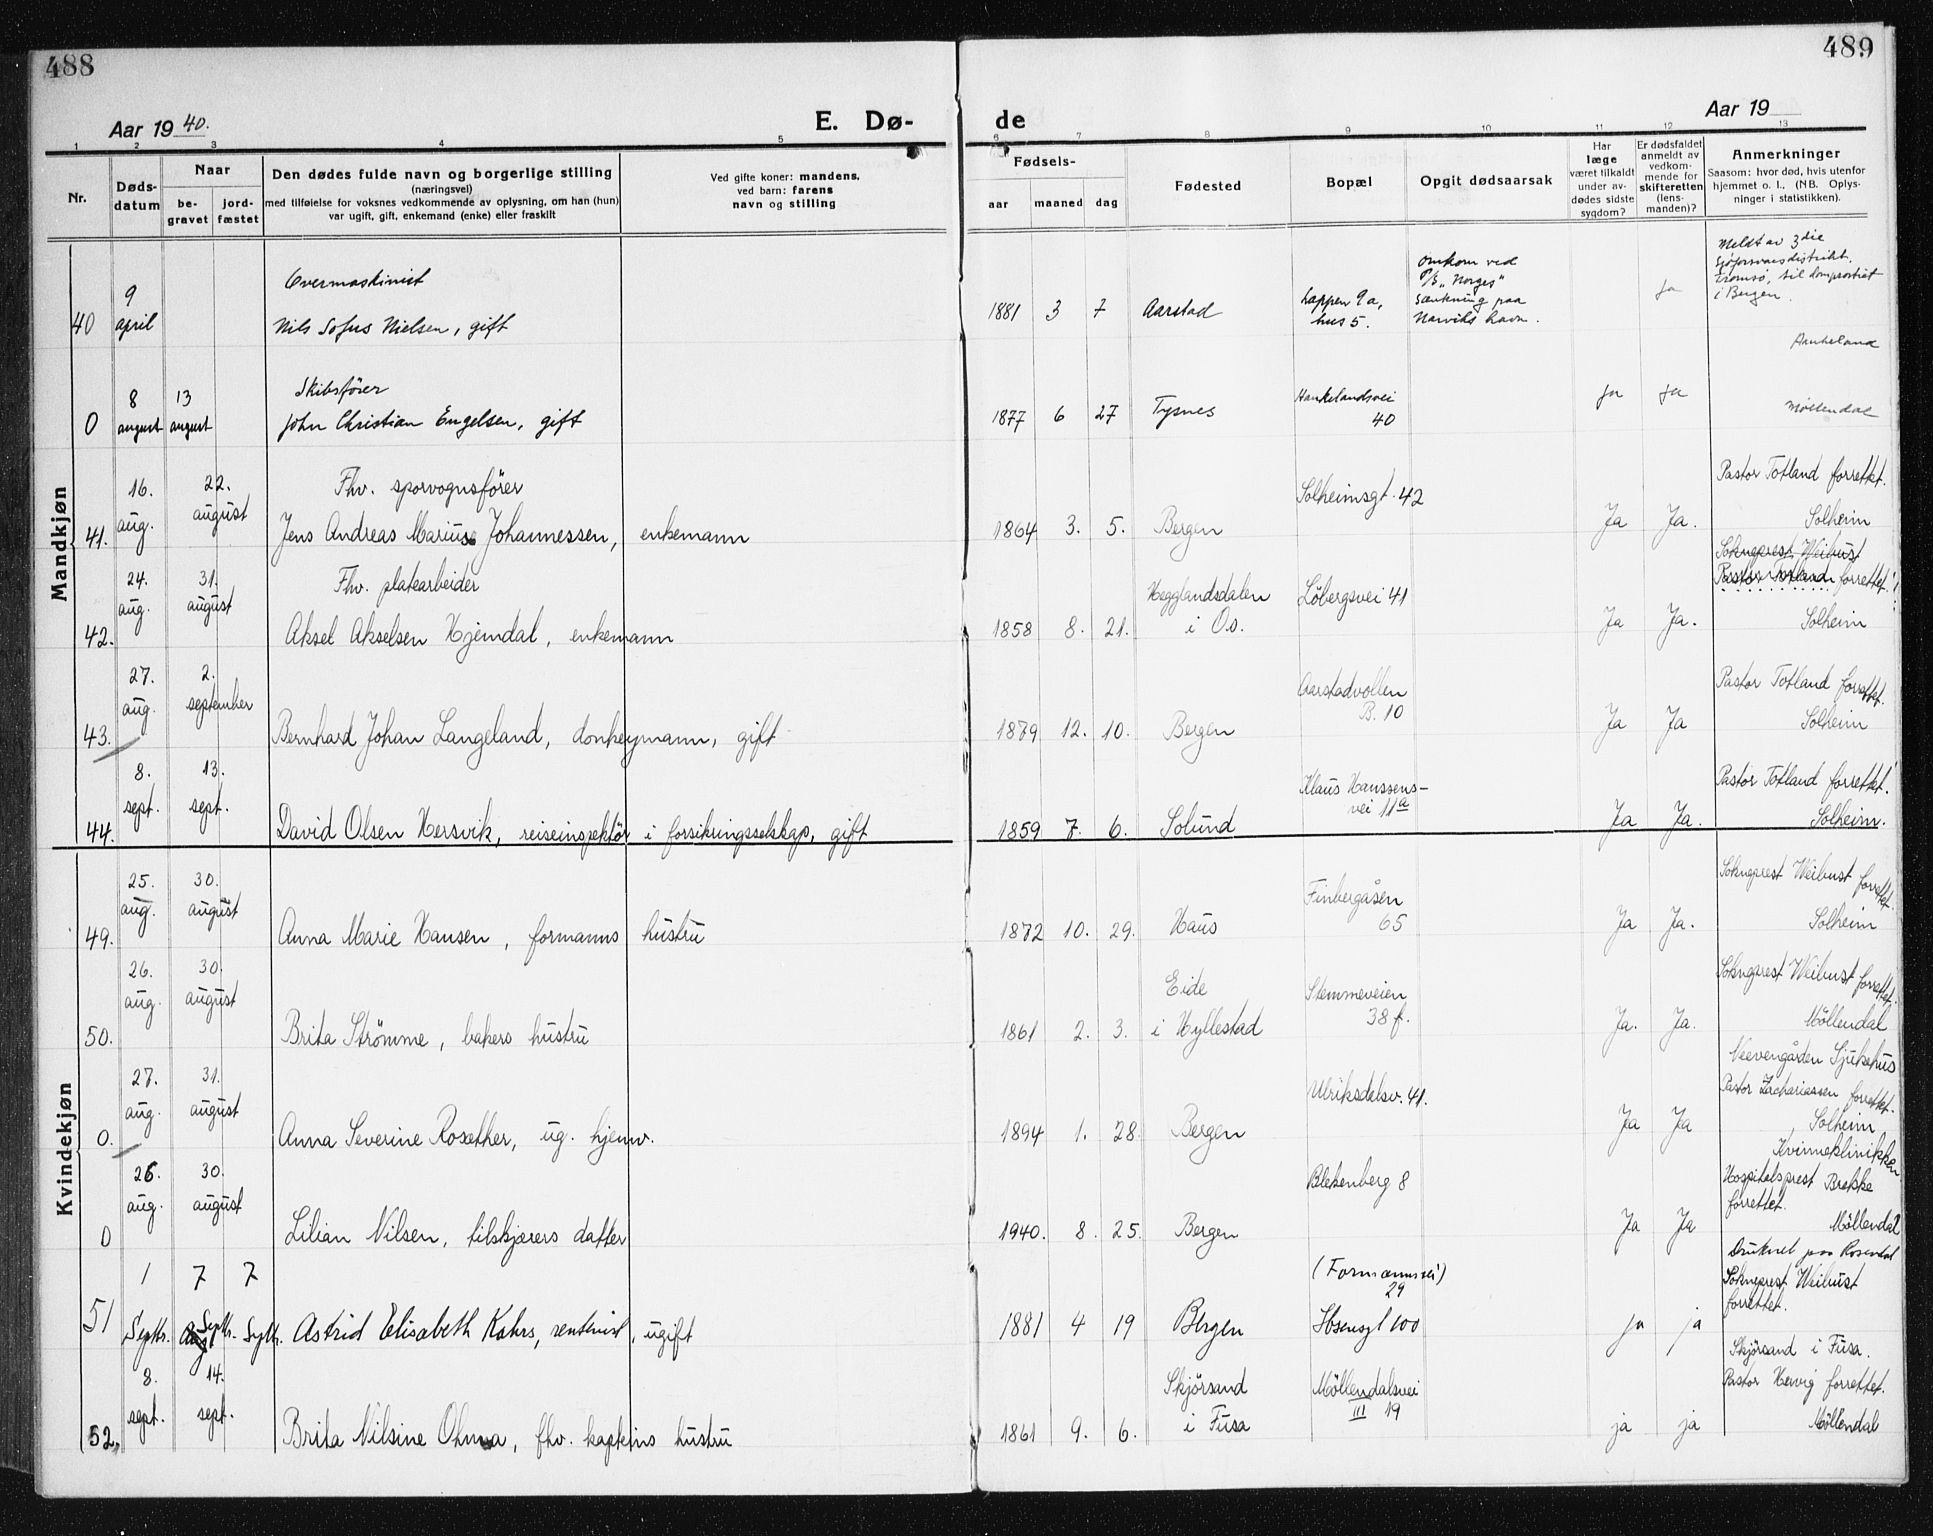 488
489
Aar 1940.
E. Dø-
de
Aar 19
1 2 3 4 5 6 7 8 9 10 11 12 13
Nr.
Døds-
datum
Naar
be-
gravet
jord-
fæstet
Den dødes fulde navn og borgerlige stilling
(næringsvei)
med tilføielse for voksnes vedkommende av oplysning, om han (hun)
var ugift, gift, enkemand (enke) eller fraskilt
Ved gifte koner: mandens,
ved barn: farens
navn og stilling
Fødsels-
aar maaned dag
Fødested
Bopæl
Opgit dødsaarsak
Har
læge
været tilkaldt
under av-
dødes sidste
sygdom?
Er dødsfaldet
anmeldt av
vedkom-
mende for
skifteretten
(lens-
manden)?
Anmerkninger
Saasom: hvor død, hvis utenfor
hjemmet o. l., (NB. Oplys-
ninger i statistikken).
Mandkjøn
40
9
april
Overmaskinist
Nils Sofus Nielsen, gift
1881 3 7
Aarstad
Lappen 9a,
hus 5.
Omkom ved
P/S „Norges"
sænkning paa
Narviks havn.
ja
Meldt av 3die
Sjøforsvarsdistrikt.
Tromsø, til domprostiet
i Bergen.
0
8
august
13
august
Skibsfører
John Christian Engelsen, gift
1877 6 27
Tysnes
Haukelandsvei
40
ja ja
Møllendal
41.
16.
aug.
22.
august
Fhv. sporvognsfører
Jens Andreas Marius Johannessen, enkemann
1864 3. 5.
Bergen
Solheimsgt. 42
Ja Ja.
Pastor Totland forrettet.
Solheim
42.
24.
aug.
31.
august
Fhv. platearbeider
Aksel Akselsen Hjemdal, enkemann
1858 8. 21.
Hegglandsdalen
i Os.
Löbergsvei 41
Ja Ja.
Sokneprest Weibust
Pastor Totland forrettet.
Solheim
43.
27.
aug.
2.
september
Bernhard Johan Langeland, donkeymann, gift
1879 12. 10.
Bergen
Aarstadvollen
B. 10
Ja Ja
Pastor Totland forrettet.
Solheim
44.
8.
sept.
13.
sept.
David Olsen Hersvik, reiseinspektör i forsikringsselskap, gift
1859 7. 6.
Solund
Klaus Hanssens-
vei 11a
Ja Ja.
Pastor Totland forrettet.
Solheim.
Kvindekjøn
49.
25.
aug.
30.
august
Anna Marie Hansen, formanns hustru
1872 10. 29.
Haus
Finbergåsen
65
Ja Ja.
Sokneprest Weibust forrettet.
Solheim
50.
26.
aug.
30.
august
Brita Strömme, bakers hustru
1861 2. 3.
Eide
i Hyllestad
Stemmeveien
38 f.
Ja. Ja.
Sokneprest Weibust forrettet.
Möllendal
0.
27.
aug.
31.
august
Anna Severine Rosether, ug. hjemv.
1894 1. 28.
Bergen
Ulriksdalsv. 41.
Ja Ja
Neevengården Sjukehus
Pastor Zachariassen forrettet.
Solheim
0
26.
aug.
30.
august
Lilian Nilsen, tilskjærers datter
1940. 8. 25.
Bergen
Blekenberg 8
Ja Ja
Kvinneklinikken
Hospitalsprest Brekke
forrettet.
Möllendal
51
1
Septbr.
7
Septbr.
7
Septbr.
Astrid Elisabeth Kahrs, rentenist, ugift
1881 4 19
Bergen
(Formannsvei)
29
Ibsensgt 100
ja ja
Druknet paa Rosendal
Sokneprest Weibust
forrettet.
52.
8.
sept.
14.
sept.
Brita Nilsine Ohma, fhv. kapteins hustru
1861 9. 6.
Skjörsand
i Fusa
Möllendalsvei
III 19
ja ja
Skjörsand i Fusa.
Pastor Hervig forrettet.
Möllendal